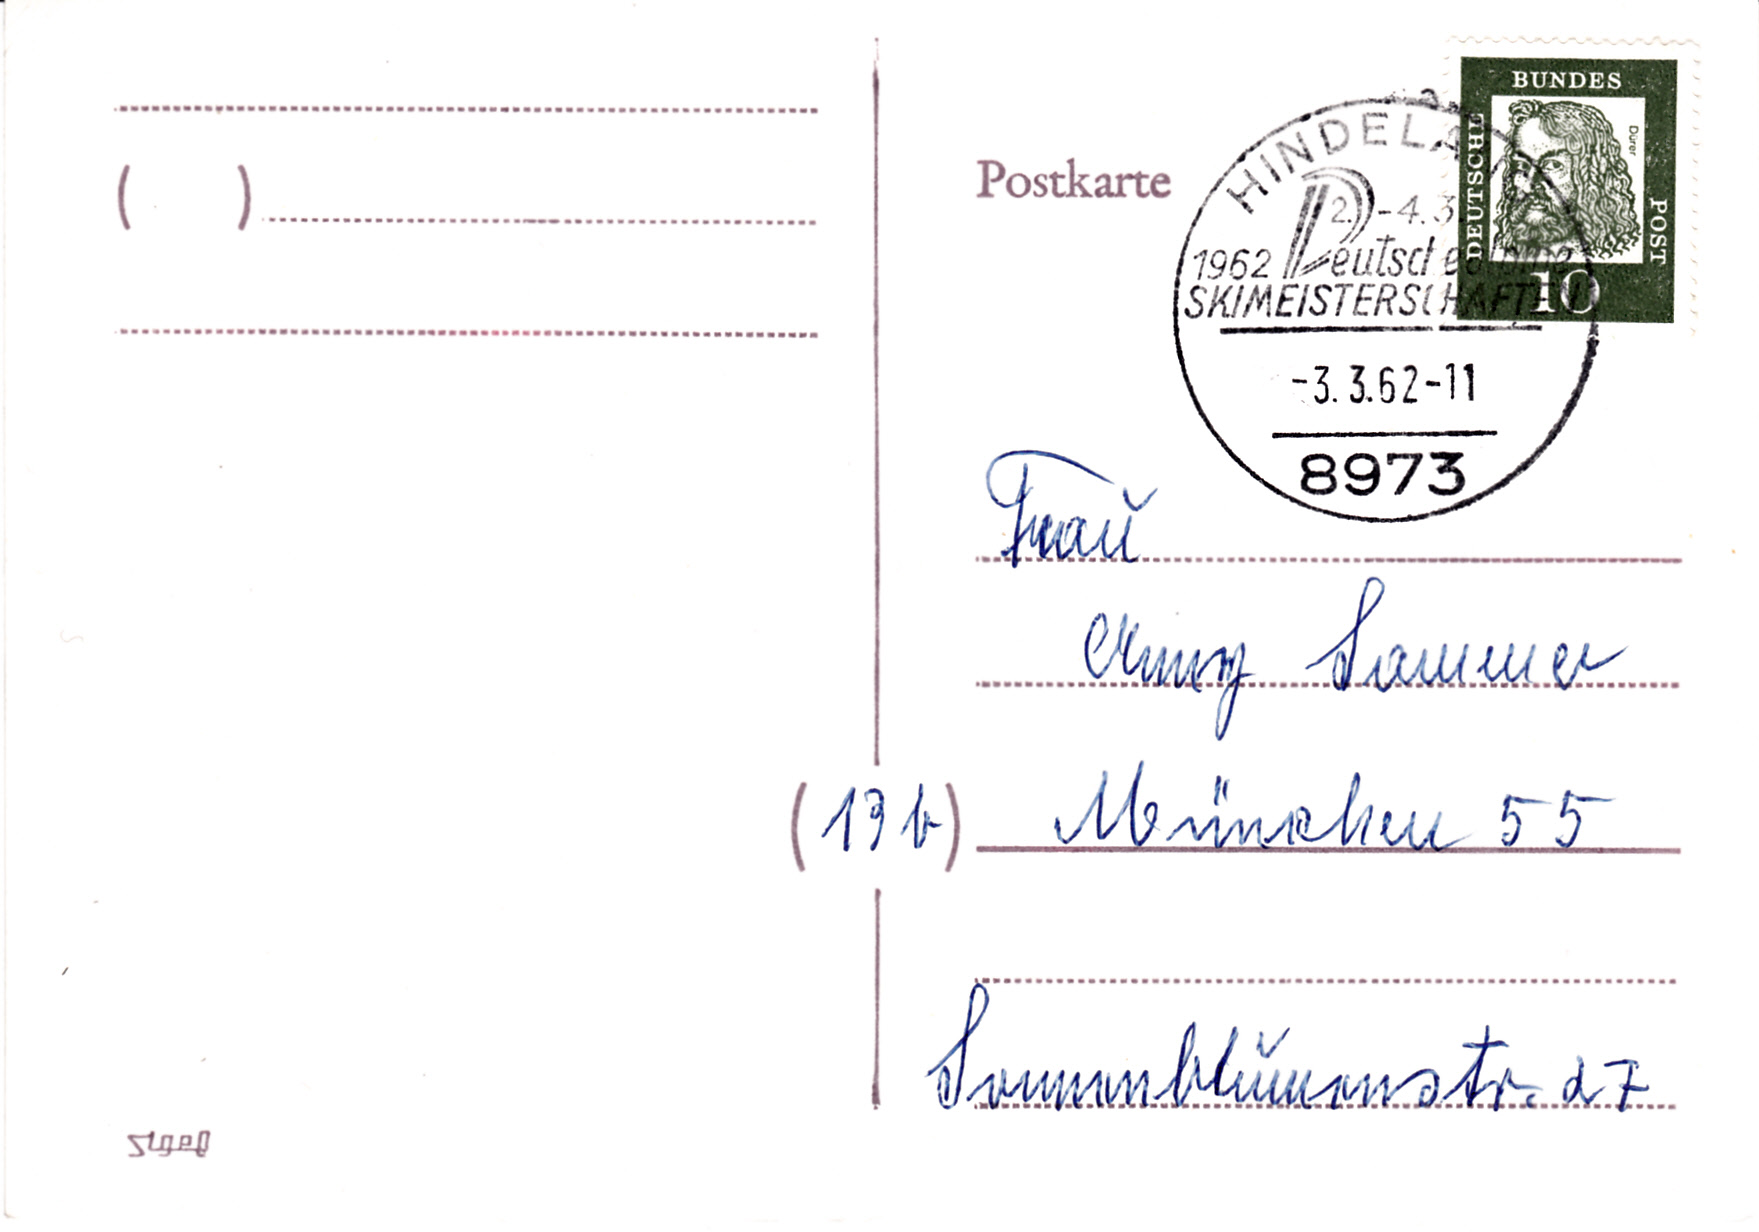 BUNDES
DEUTSCHE
POST
Dürer
10
Postkarte
HINDELA
2.-4.3.
1962 Deutsche alpine
SKIMEISTERSCHAFTEN
-3.3.62-11
8973
Frau
Sommer
(13b) München 55
Sonnenblumenstr. 27